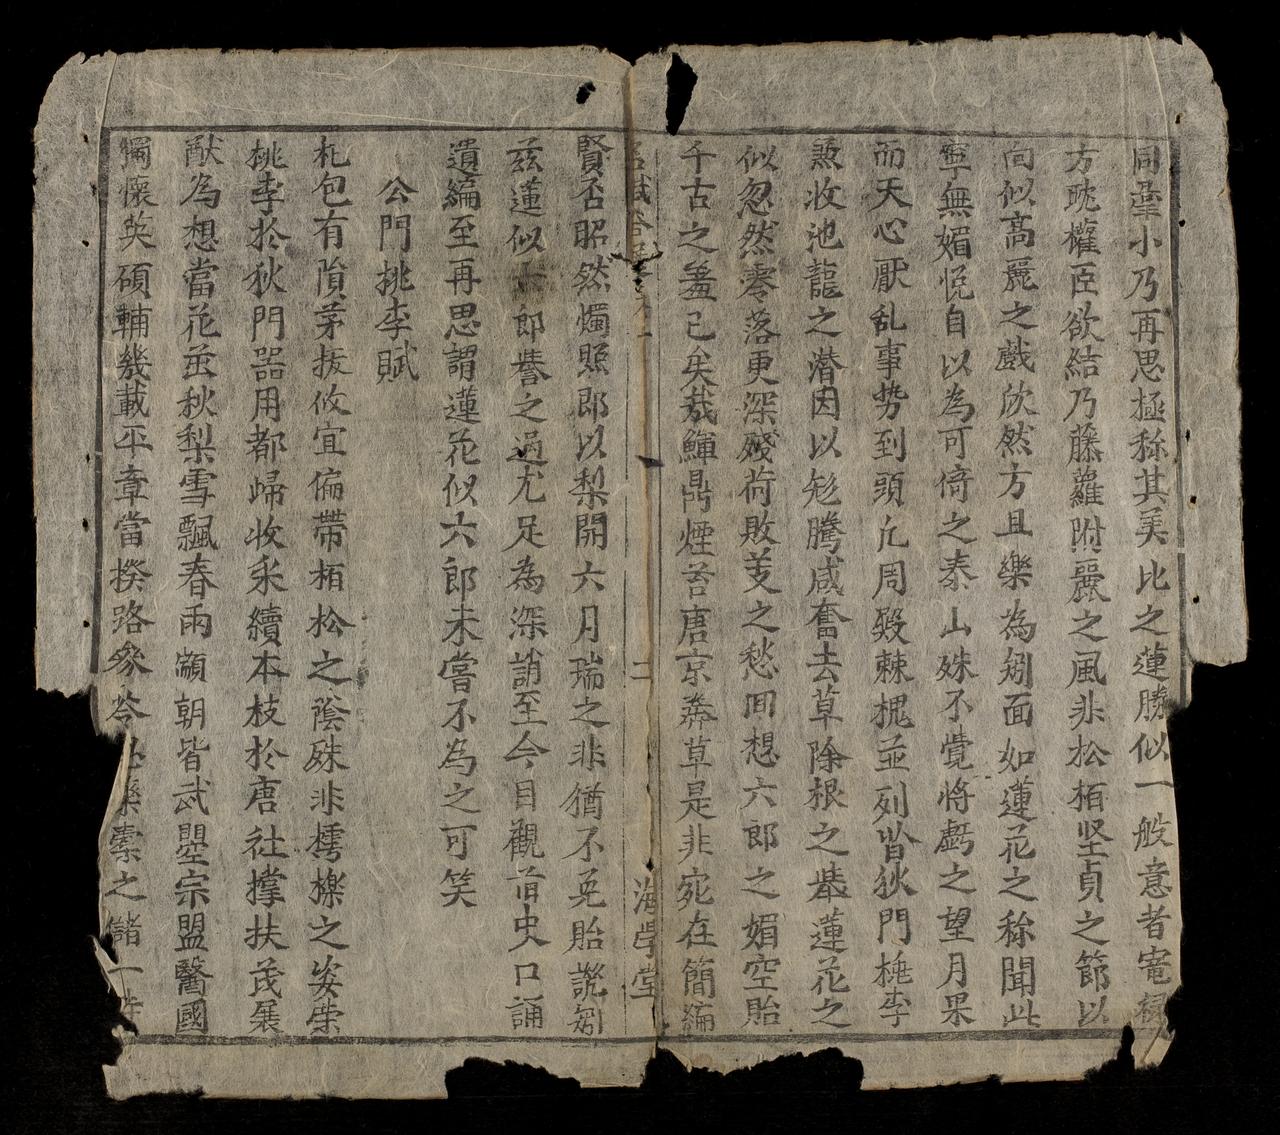 同羣小乃再思極称其美比之蓮勝似一般意者寃
方貤權臣欲結乃藤蘿附麗之風非松栢坚貞之節以
向似高麗之戲欣然方且樂為匑面如蓮花之称聞此
寧無媚悅自以為可倚之泰山殊不覺將虧之望月果
而天心厭乱事势到頭凢周毀棘槐並列皆狄門桃李
𠔥收池龍之潜因以㐌騰咸奮去草除根之举蓮花之
似忽然零落更深殘荷敗芰之愁囬想六郎之媚空貽
千古之羞已矣㦲鱓鼎煙苔唐京莽草是非宛在簡編
二
海學堂
賢否昭然燭照郎以梨開六月瑞之非猶不免貽譏匑
兹蓮似六郎誉之過尤足為深誚至今目觀青史口誦
遺編至再思謂蓮花似六郎未嘗不為之可笑
公門桃李賦
札包有隕茅拔攸宜偏帶栢松之蔭殊非樗櫟之姿柴
桃李於狄門器用都歸收采續本枝於唐社撑扶茂展
猷為想當花並秋梨雪飄春雨巔朝皆武曌宗盟醫國
獨懷英碩輔幾載平章當揆路參苓藥素之儲一